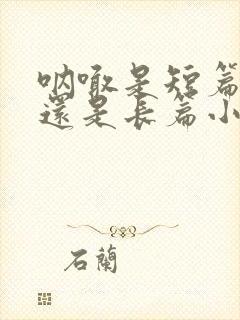 呐喊是短篇
還是長篇小
石蘭